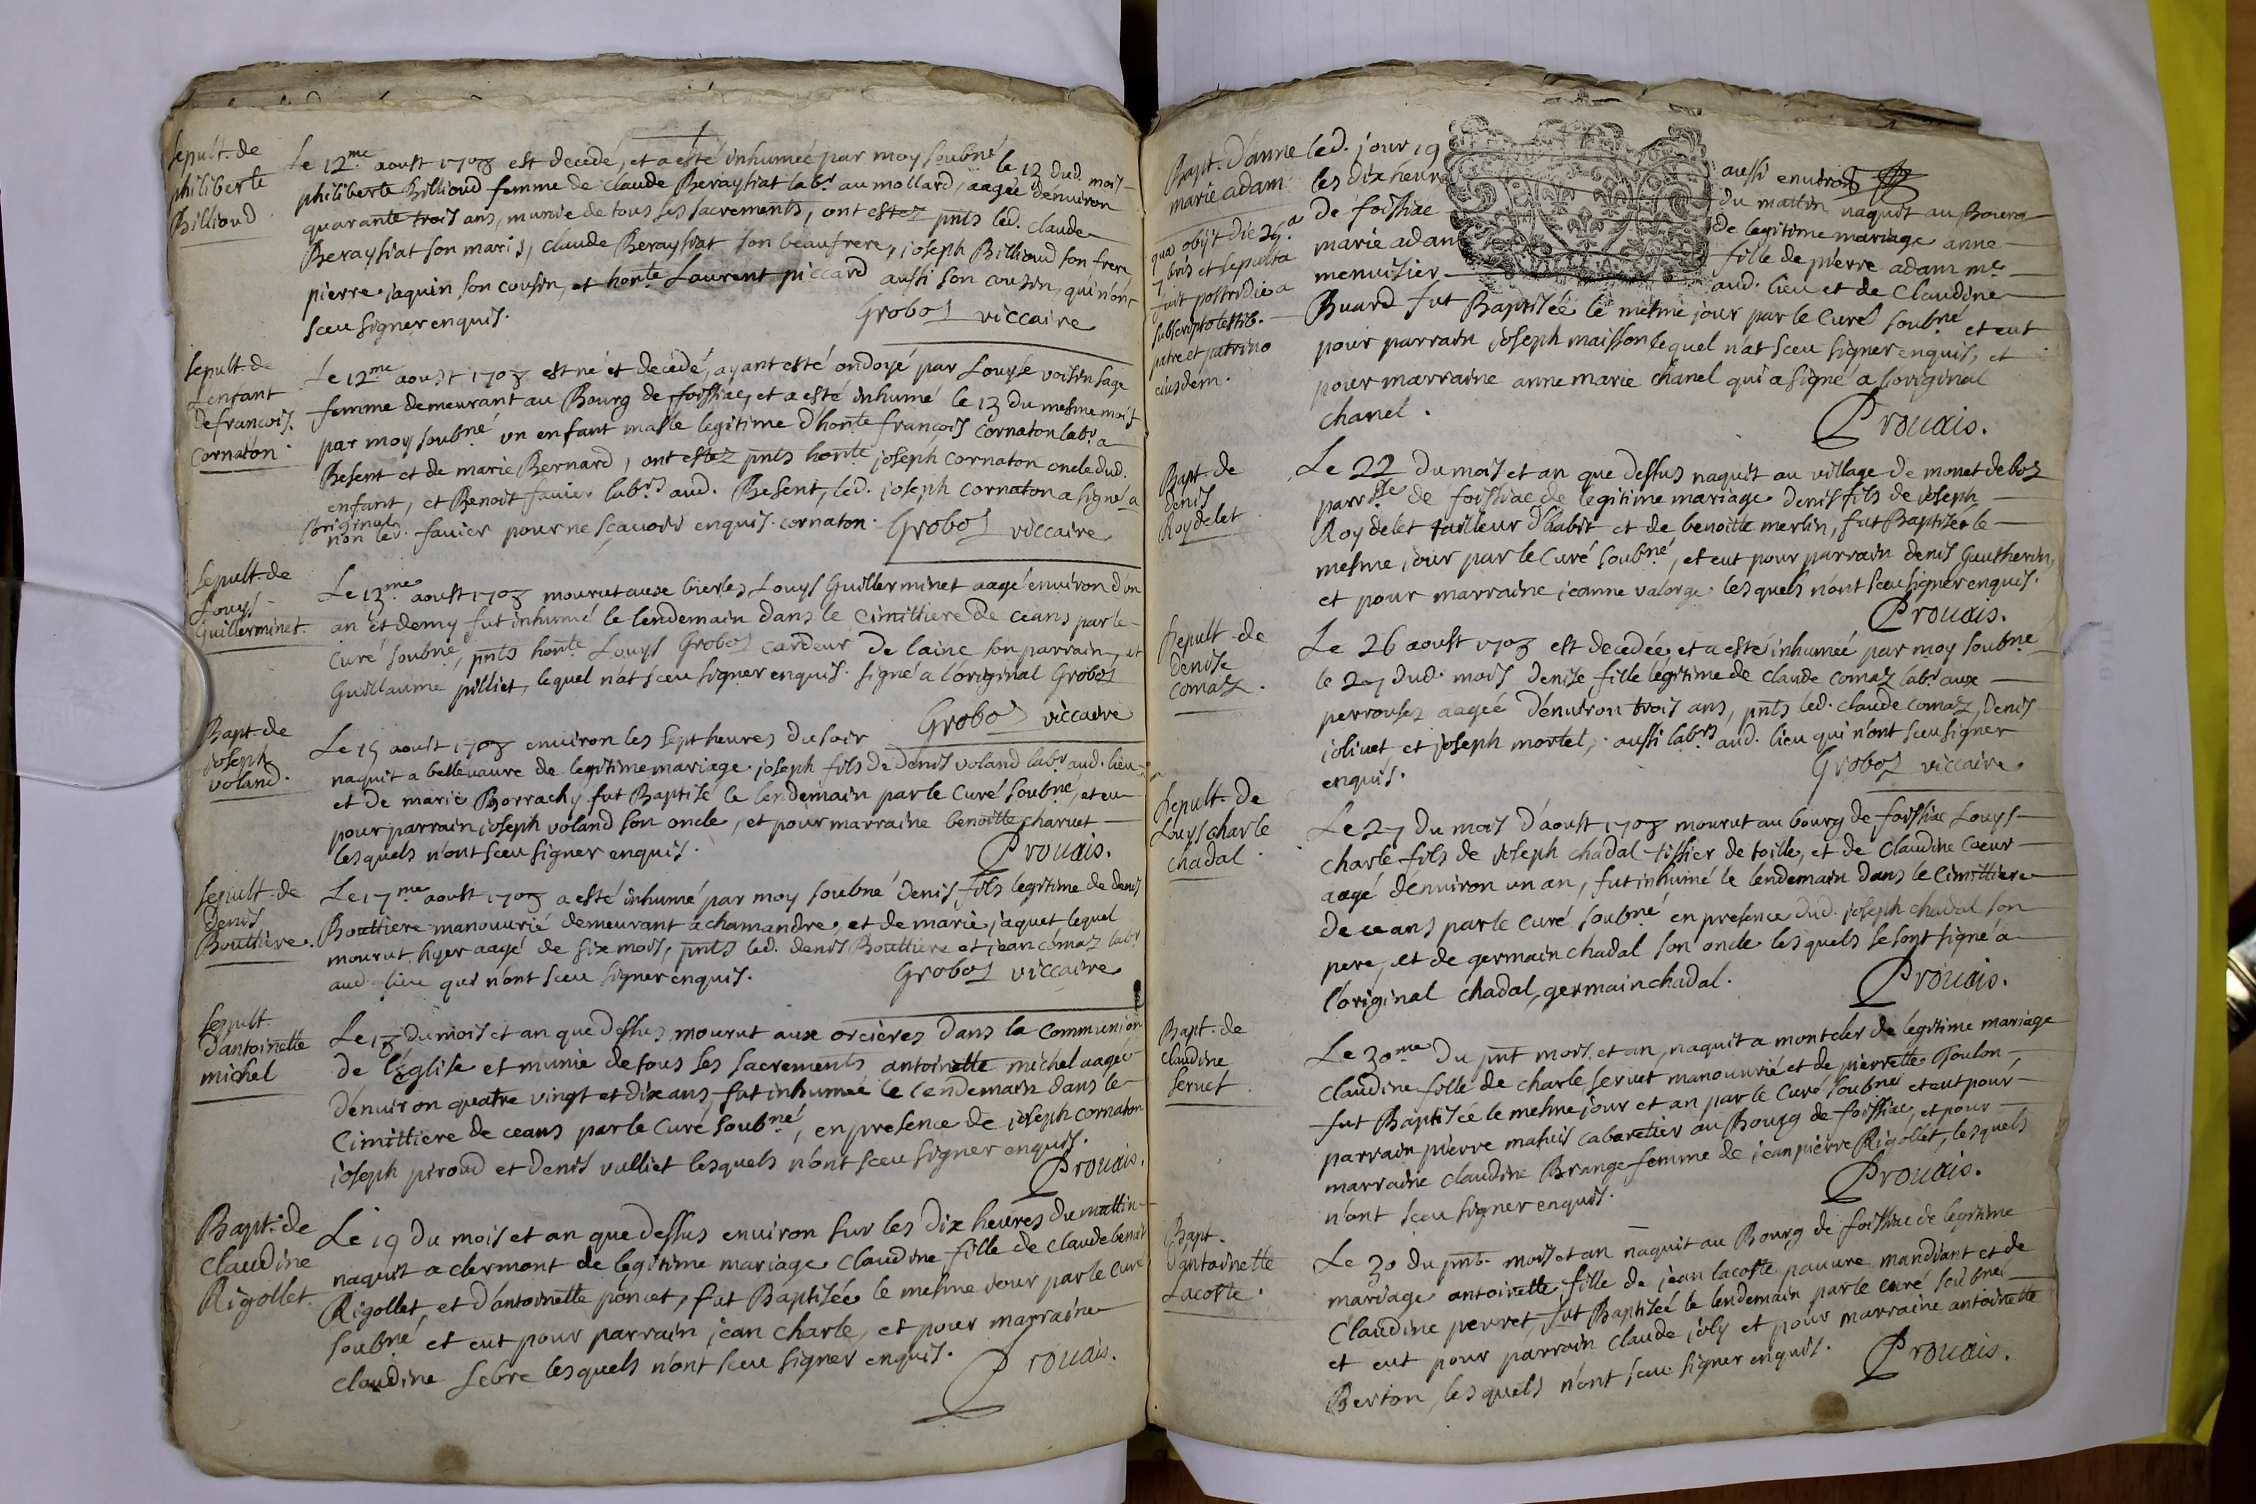 Sepult. de
philiberte
Billioud
Le 12.me aoust 1708 est decedé, et a esté inhumeé par moy soubné le 13 dud. mois
philiberte Billioud femme de claude Beraystiat labr. au mollard, aageé d'environ
quarante trois ans, munie de tous ses sacrements, ont estez pnts led. claude
Beraystiat son maris, claude Beraystiat son beaufrere, joseph Billioud son frere
pierre jaquin son cousin, et honte. Laurent piccard aussi son cousin, qui n'ont
sceu signer enquis.
Groboz viccaire
Sepult. de
L'enfant
de francois
cornaton
Le 12me aoust 1708 est né et decedé, ayant esté ondoyé par Louyse voisin sage
femme demeurant au Bourg de foissiac, et a esté inhumé le 13 du mesme mois
par moy soubné un enfant masle legitime d'honte francois cornaton labr. a
Besent et de marie Bernard, ont estez pnts honte joseph cornaton oncle dud.
enfant, et Benoit favier labrs. aud. Besent, led. joseph cornaton a signé a
l'original
non led. favier pour ne sçavoir enquis. cornaton. Groboz viccaire
Sepult. de
Louys
Guillerminet.
Le 13me aoust 1708 mourut aux bierles Louys Guillerminet aagé environ d'un
an et demy fut inhumé le lendemain dans le cimittiere de ceans par le
curé soubné, pnts honte Louys Groboz cardeur de laine son parrain, et
Guillaume pilliet, lequel n'at sceu signer enquis. signé a l'original Groboz
Groboz viccaire
Bapt. de
joseph
voland.
Le 15 aoust 1708 environ les sept heures du soir
naquit a bellevavre de legitime mariage joseph fils de denis voland labr. aud. lieu
et de marie Borrachy fut Baptisé le lendemain par le curé soubné, et eu
pour parrain joseph voland son oncle, et pour marraine benoitte charvet
lesquels n'ont sceu signer enquis.
Prouais.
Sepult. de
denis
Bouttiere.
Le 17me aoust 1708 a esté inhumé par moy soubné denis fils legitime de denis
Bouttiere manouvrié demeurant a chamandre, et de marie jaquet lequel
mourut hyer aagé de six mois, pnts led. denis Bouttiere et jean comaz labr
aud. lieu qui n'ont sceu signer enquis.
Groboz viccaire
Sepult.
d'antoinette
michel
Le 18 du mois et an que dessus mourut aux orcieres dans la communion
de l'église et munie de tous ses sacrements antoinette michel aageé
d'environ quatre vingt et dix ans, fut inhumeé le lendemain dans le
cimittiere de ceans par le curé soubné, en presence de joseph cornaton
joseph piroud et denis vulliet lesquels n'ont sceu signer enquis.
Prouais.
Bapt. de
claudine
Rigollet.
Le 19 du mois et an que dessus environ sur les dix heures du mattin
naquit a clermont de legitime mariage claudine fille de claude benoit
Rigollet, et d'antoinette poncet, fut Baptisée le mesme jour par le curé
soubné, et eut pour parrain jean charle, et pour marraine
claudine Lebre lesquels n'ont sceu signer enquis.
Prouais.
Bapt. d'anne
marie adam
quae obijt die 26.a
7bris et sepulta
fuit postridie a
subscripto testib.
patre et patrino
eiusdem.
led. jour 19 aussi environ
les dix heures du mattin naquit au Bourg
de foissiac de legitime mariage anne
marie adam fille de pierre adam me.
menuisier aud. lieu et de claudine
Buard fut Baptisée le mesme jour par le curé soubné et eut
pour parrain joseph maisson lequel n'at sceu signer enquis, et
pour marraine anne marie chanel qui a signé a l'original
chanel.
Prouais.
Bapt. de
denis
Roydelet
Le 22 du mois et an que dessus naquit au village de monet deboz
parrsse de foissiac de legitime mariage denis fils de joseph
Roydelet tailleur d'habit et de benoitte merlin, fut Baptisé le
mesme jour par le curé soubné, et eut pour parrain denis Gautherin,
et pour marraine jeanne valorge. lesquels n'ont sceu signer enquis.
Prouais.
Sepult. de
denise
comaz.
Le 26 aoust 1708 est decedée et a esté inhumeé par moy soubné
le 27 dud. mois denise fille légitime de claude comaz labr. aux
perrouses aageé d'environ trois ans, pnts led. claude comaz, denis
jolivet et joseph mortel, aussi labrs aud. lieu qui n'ont sceu signer
enquis.
Groboz viccaire
Sepult. de
Louys charle
chadal.
Le 27 du mois d'aoust 1708 mourut au bourg de foissiac Louys
charle fils de joseph chadal tissier de toille, et de claudine coeur
aagé d'environ un an, fut inhumé le lendemain dans le cimittiere
de ceans par le curé soubné en presence dud. joseph chadal son
pere, et de germain chadal son oncle lesquels se sont signé a
l'original chadal, germain chadal.
Prouais.
Bapt. de
claudine
servet
Le 30me du pnt mois et an, naquit a montcler de legitime mariage
claudine fille de charle servet manouvrié et de pierrette Goulon,
fut Baptisée le mesme jour et an par le curé soubné et eut pour
parrain pierre mahuis cabaretier au Bourg de foissiac, et pour
marraine claudine Brange femme de jean pierre Rigollet, lesquels
n'ont sceu signer enquis.
Prouais.
Bapt.
d'antoinette
Lacoste.
Le 30 du pnt. mois et an naquit au Bourg de foissiac de legitime
mariage antoinette fille de jean lacoste pauvre mandiant et de
claudine perret, fut Baptisée le lendemain par le curé soubné
et eut pour parrain claude joly et pour marraine antoinette
Berton, lesquels n'ont sceu signer enquis.
Prouais.